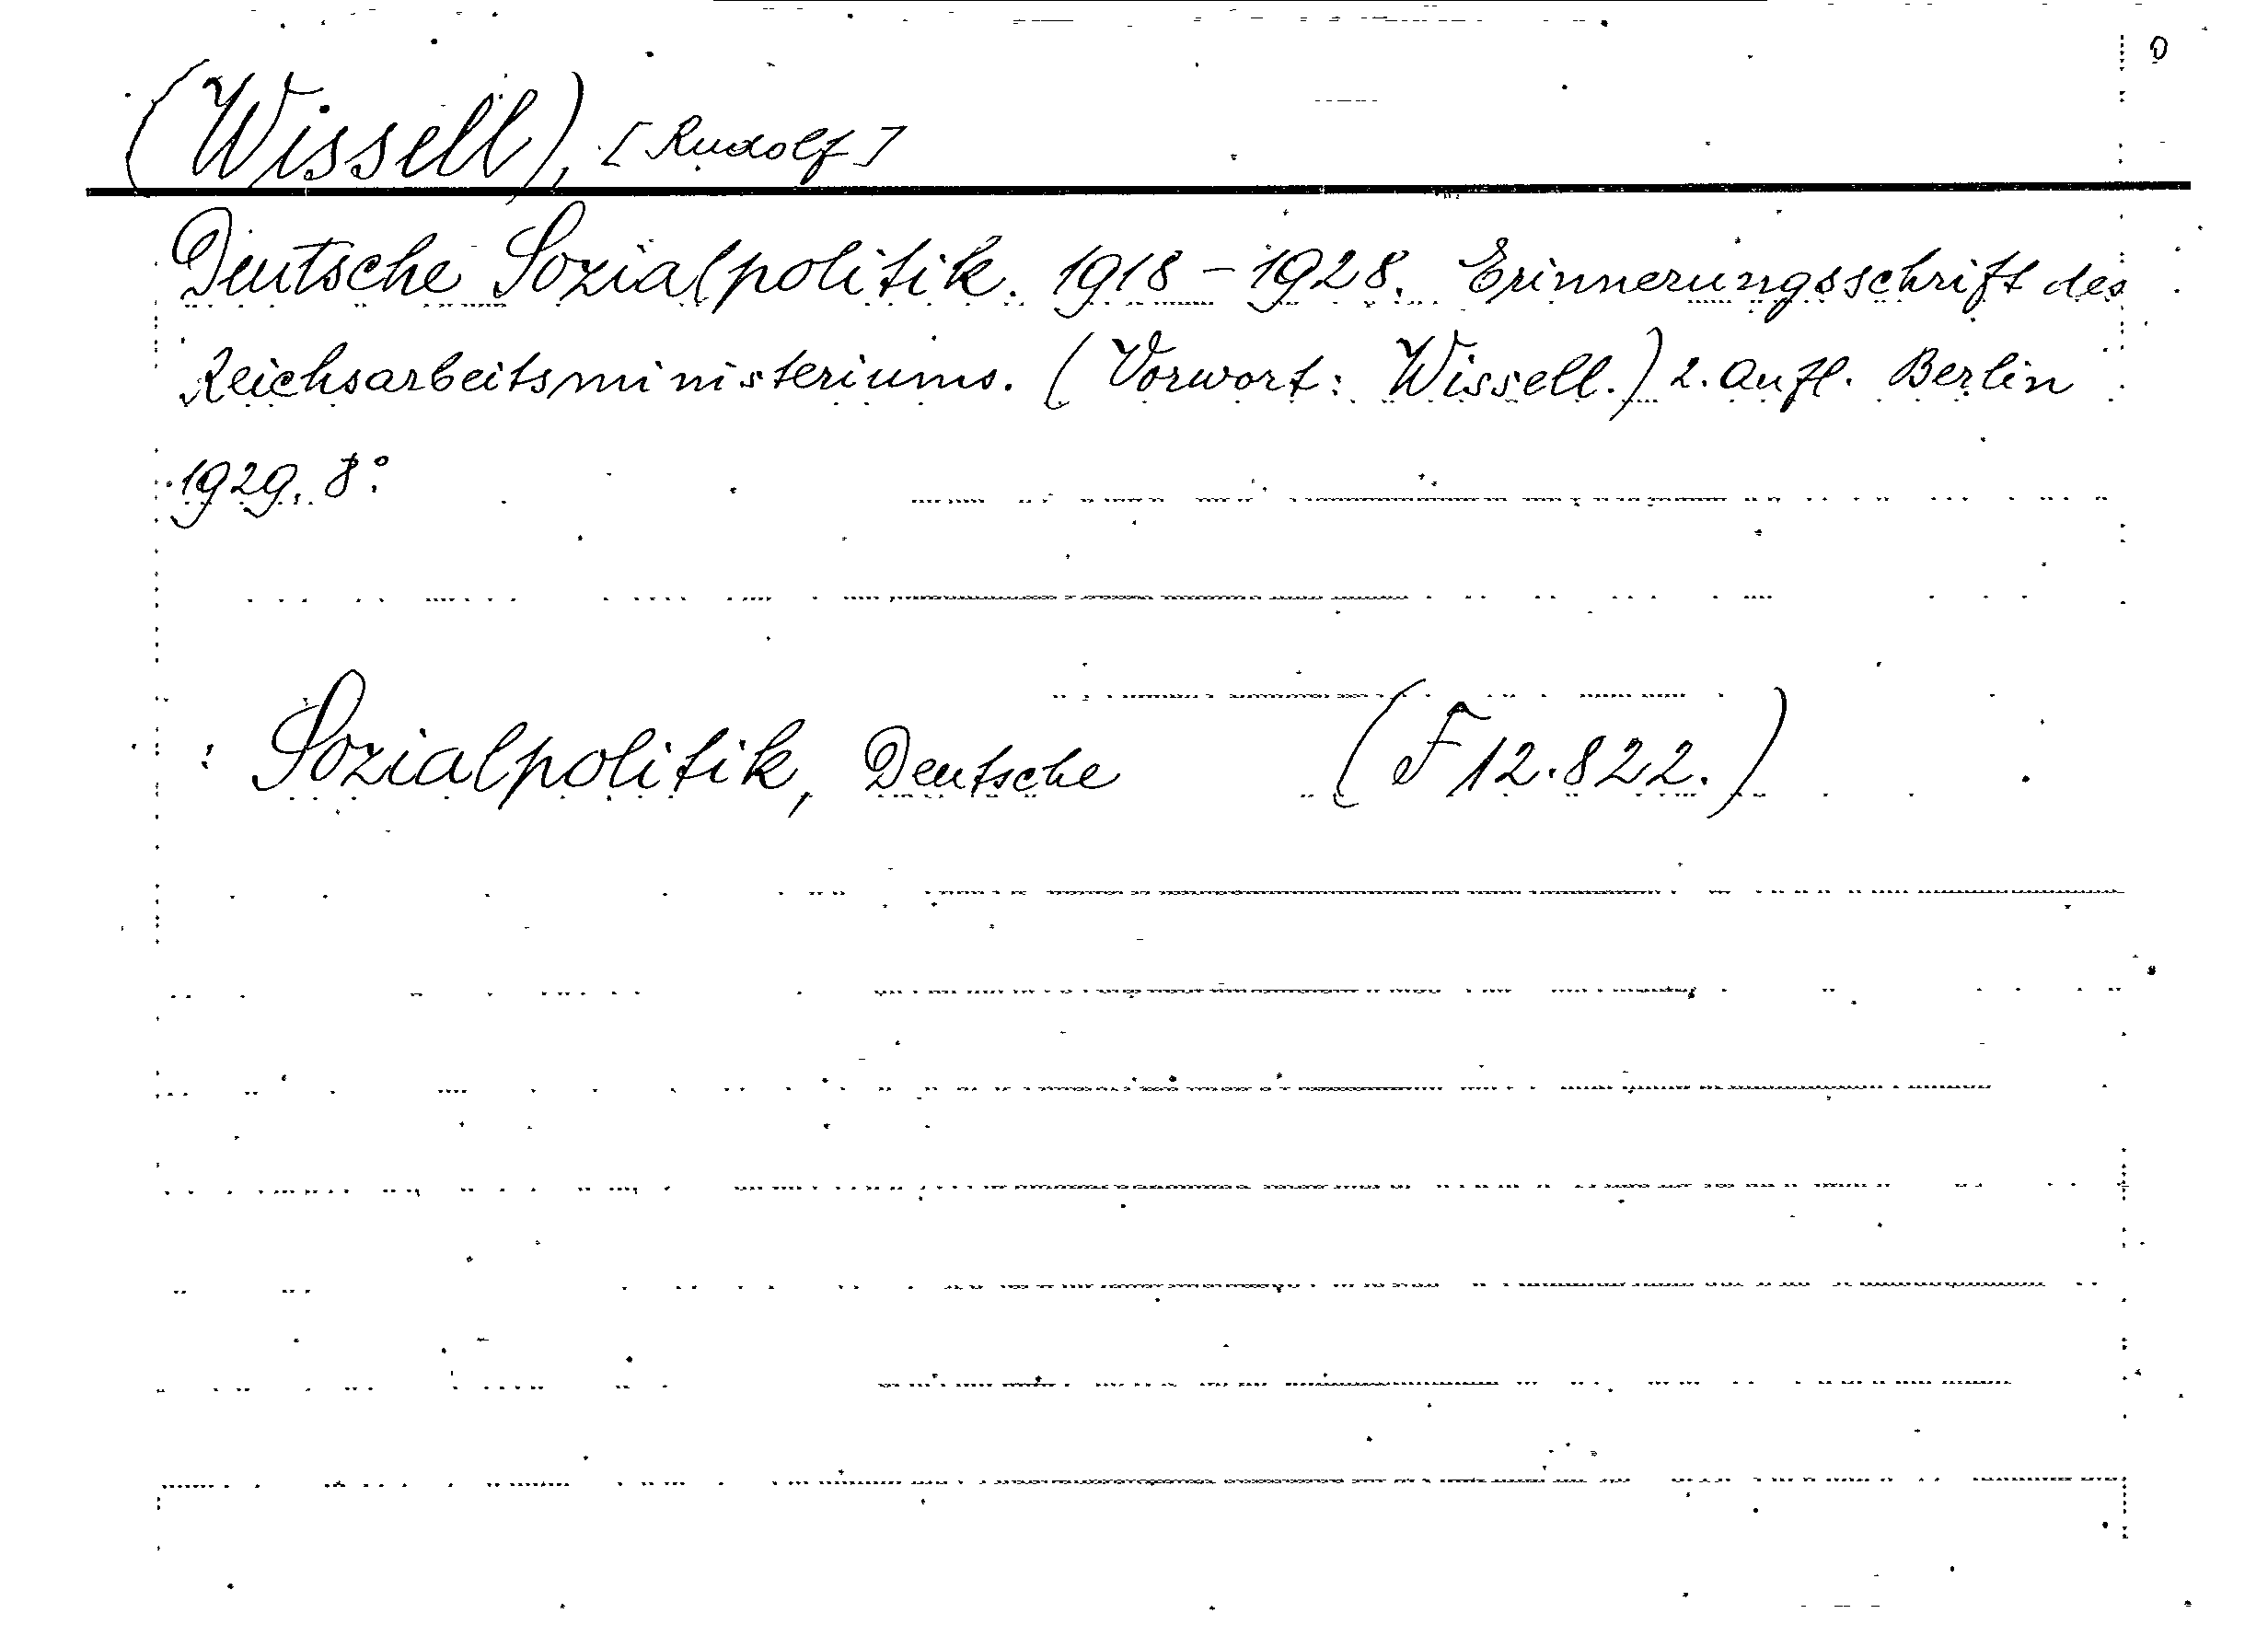 (Wissell), [Rudolf]
Deutsche Sozialpolitik. 1918-1928. Erinnerungsschrift des
Reichsarbeitsministeriums. (Vorwort: Wissell.) 2. Aufl. Berlin
1929. 8°
: Sozialpolitik, Deutsche (F 12.822.)